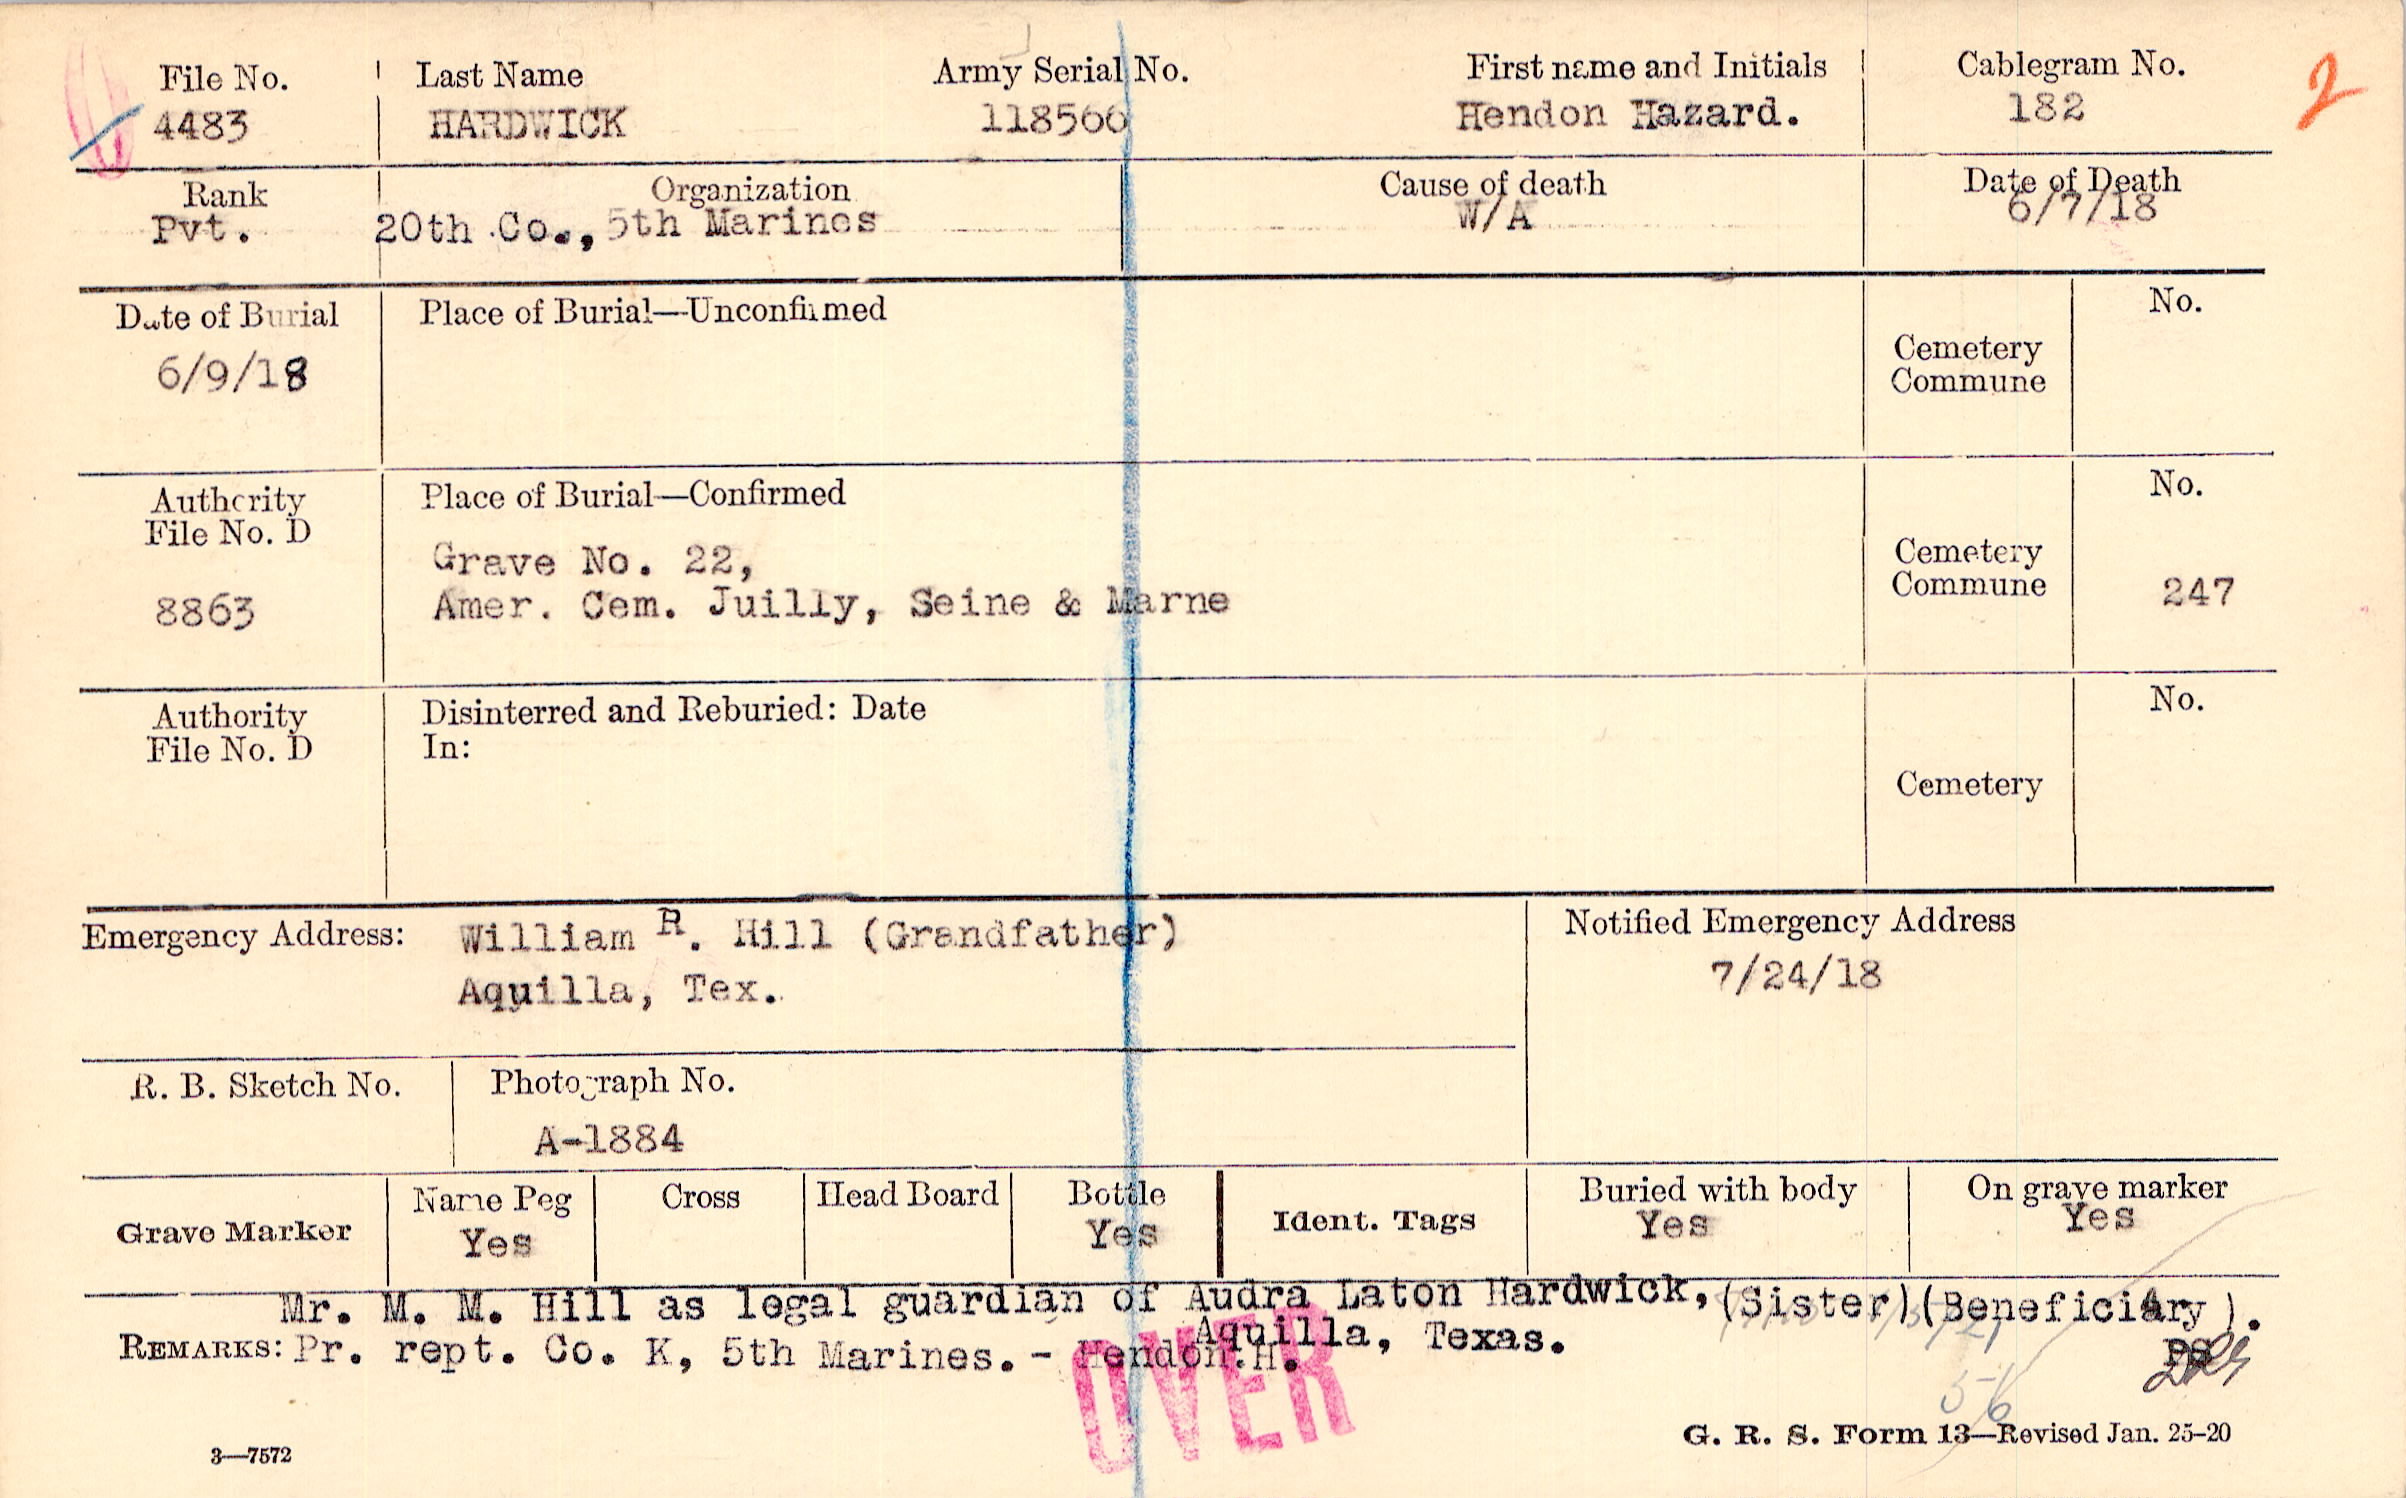 File No. Last Name Army Serial No. First name and Initials Cablegram No. 2
4483 HARDWICK 118566 Hendon Hazard. 182
Rank Organization Cause of death Date of Death
Pvt. 20th Co., 5th Marines W/A 6/7/18
Date of Burial Place of Burial—Unconfirmed No.
6/9/18 Cemetery
Commune
Authority Place of Burial—Confirmed No.
File No. D
Grave No. 22, Cemetery
8863 Amer. Cem. Juilly, Seine & Marne Commune 247
Authority Disinterred and Reburied: Date No.
File No. D In:
Cemetery
Emergency Address: William R. Hill (Grandfather) Notified Emergency Address
Aquilla, Tex. 7/24/18
R. B. Sketch No. Photograph No.
A-1884
Grave Marker Name Peg Cross Head Board Bottle Ident. Tags Buried with body On grave marker
Yes Yes Yes Yes
Mr. M. M. Hill as legal guardian of Audra Laton Hardwick, (Sister)(Beneficiary).
Aquilla, Texas.
REMARKS: Pr. rept. Co. K, 5th Marines. - Hendon.H.
OVER
56
3—7572 G. R. S. Form 13—Revised Jan. 25-20